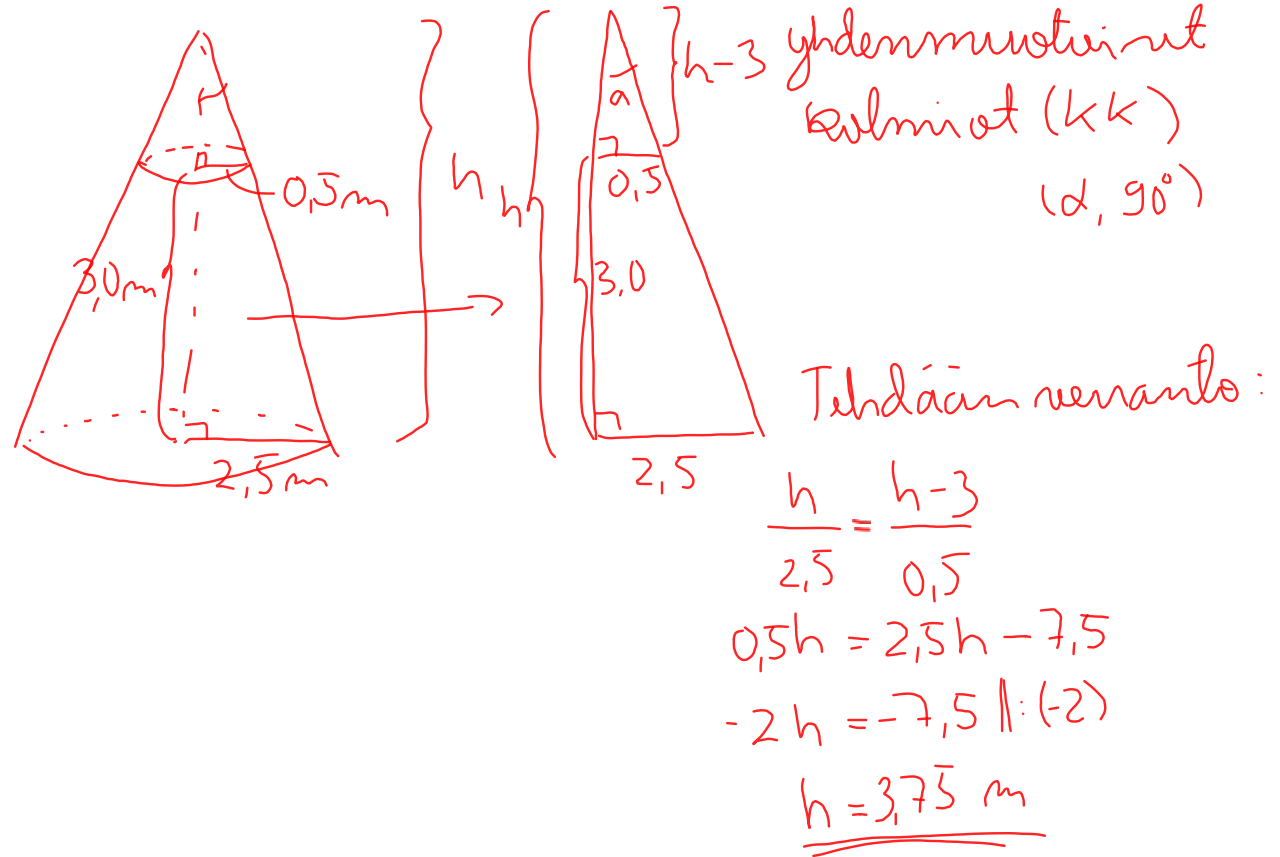 0,5 m
3,0 m
2,5 m
h
h
h-3
α
0,5
3,0
2,5
yhdenmuotoiset
kolmiot (KK)
(α, 90°)
Tehdään verranto:
h/2,5 = h-3/0,5
0,5h = 2,5h - 7,5
-2h = -7,5 ||:(-2)
h = 3,75 m